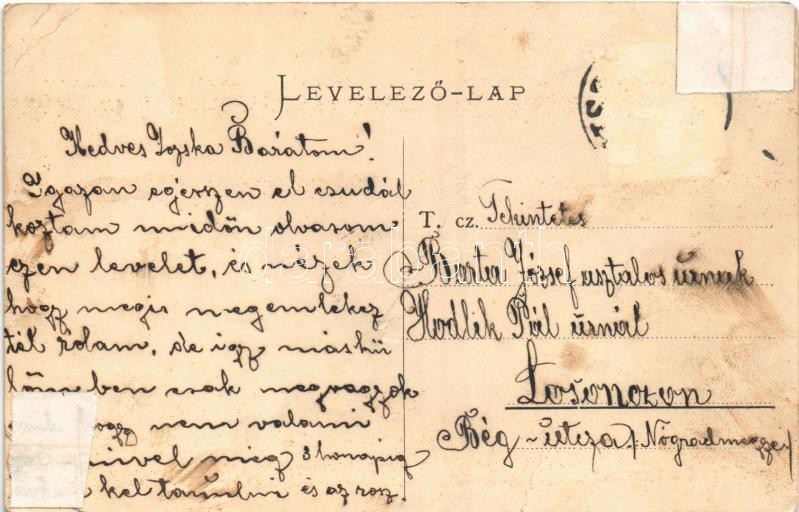 LEVELEZŐ-LAP
Kedves Jozska Barátom!
Igazan egészen el csudál
koztam midőn olvasom
ezen levelet, és nézek
hogy megis megemlékez
tél rolam, de igy máskü
lömben csak megvagyok
hogy nem valami
mivel még 3 honapig
kel tanulni és az rosz.
T. cz. Tekintetes
Barta József asztalos úrnak
Hodlik Pál úrnál
Losonczon
Bég-útcza (Nógrádmegye)
darabanth